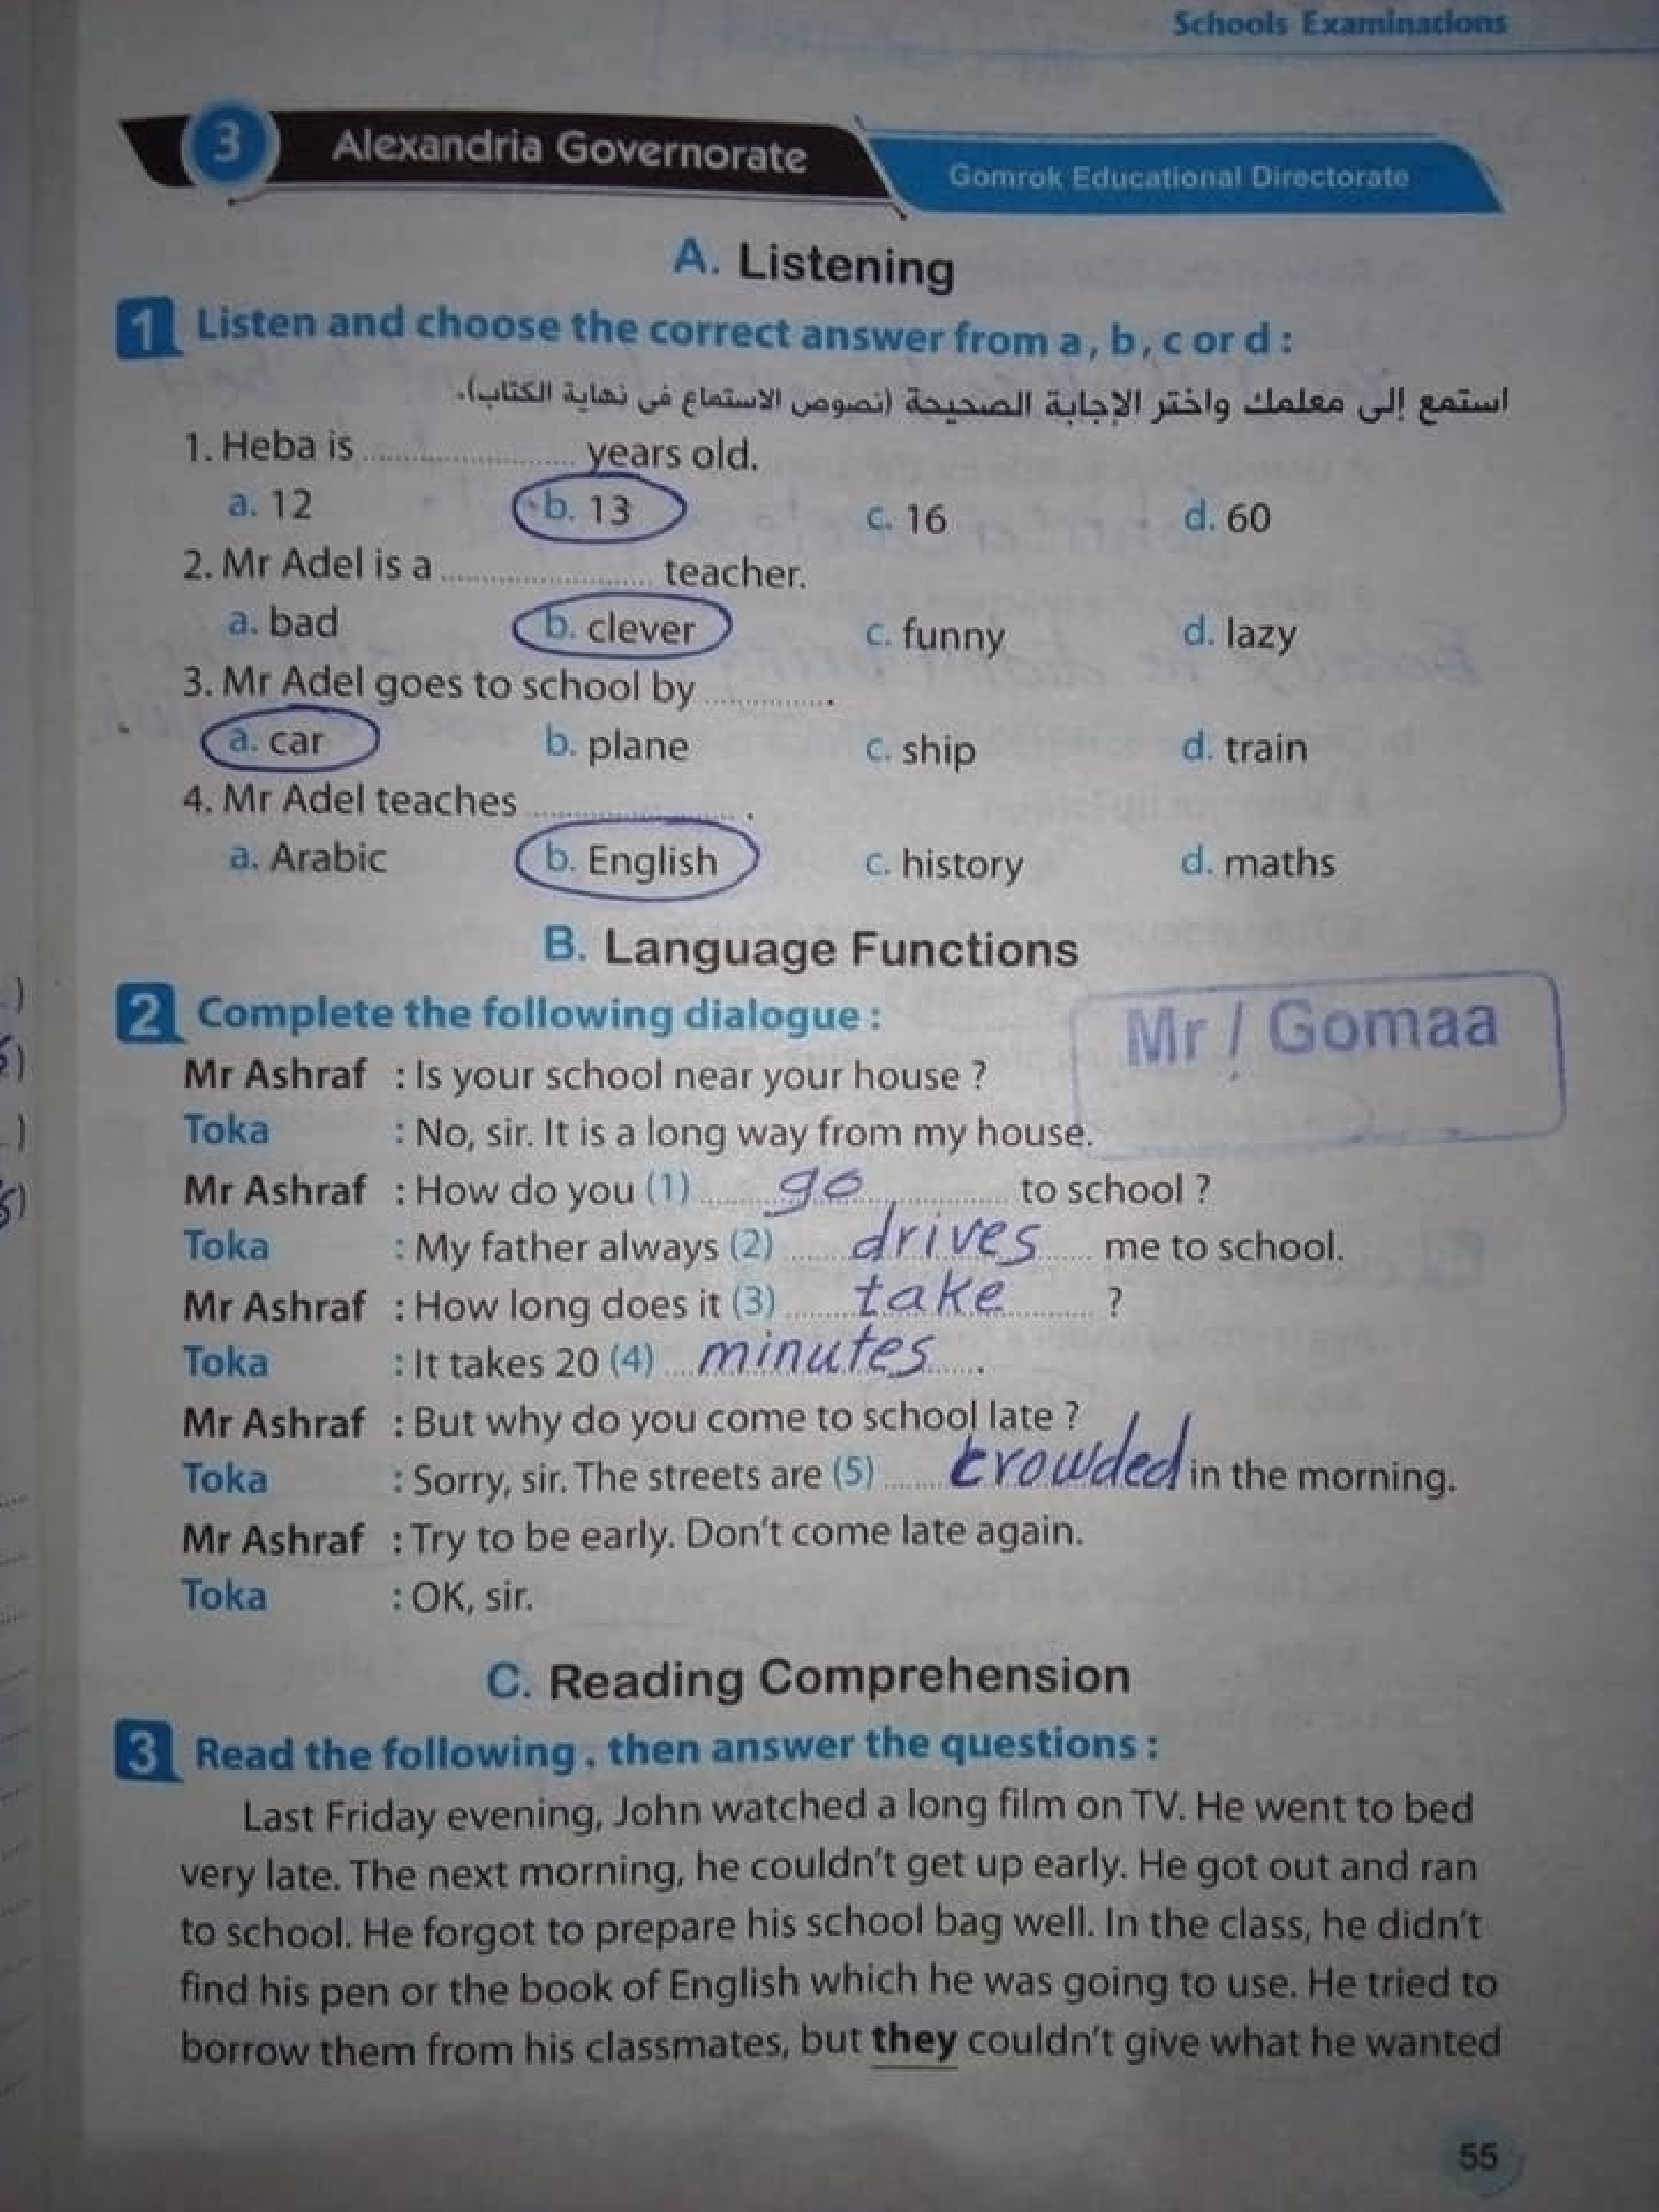 Schools Examinations
3 Alexandria Governorate Gomrok Educational Directorate
A. Listening
1 Listen and choose the correct answer from a, b, c or d :
استمع إلى معلمك واختر الإجابة الصحيحة (نصوص الاستماع فى نهاية الكتاب).
1. Heba is .................... years old.
a. 12 b. 13 c. 16 d. 60
2. Mr Adel is a .................... teacher.
a. bad b. clever c. funny d. lazy
3. Mr Adel goes to school by .............
a. car b. plane c. ship d. train
4. Mr Adel teaches .................... .
a. Arabic b. English c. history d. maths
B. Language Functions
2 Complete the following dialogue :
Mr / Gomaa
Mr Ashraf : Is your school near your house ?
Toka : No, sir. It is a long way from my house.
Mr Ashraf : How do you (1) go to school ?
Toka : My father always (2) drives me to school.
Mr Ashraf : How long does it (3) take ?
Toka : It takes 20 (4) minutes .
Mr Ashraf : But why do you come to school late ?
Toka : Sorry, sir. The streets are (5) crowded in the morning.
Mr Ashraf : Try to be early. Don't come late again.
Toka : OK, sir.
C. Reading Comprehension
3 Read the following , then answer the questions :
Last Friday evening, John watched a long film on TV. He went to bed
very late. The next morning, he couldn't get up early. He got out and ran
to school. He forgot to prepare his school bag well. In the class, he didn't
find his pen or the book of English which he was going to use. He tried to
borrow them from his classmates, but they couldn't give what he wanted
55